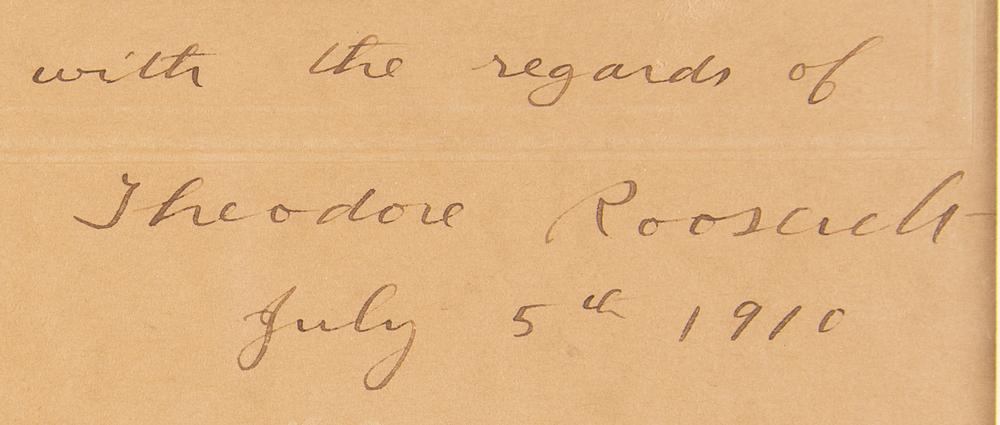 with the regards of
Theodore Roosevelt
July 5th 1910